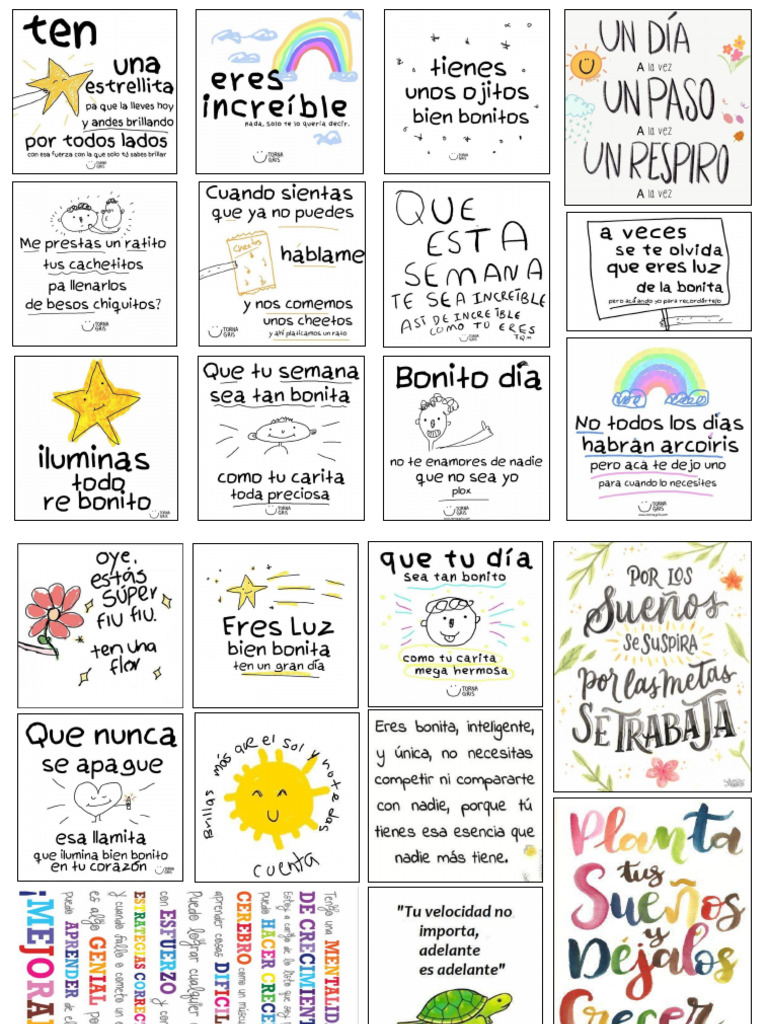 ten
una
estrellita
pa que la lleves hoy
y andes brillando
por todos lados
con esa fuerza con la que solo tú sabes brillar
eres
increíble
nada, solo te lo quería decir.
TORNA
GRIS
tienes
unos ojitos
bien bonitos
UN DÍA
A la vez
UN PASO
A la vez
UN RESPIRO
A la vez
Me prestas un ratito
tus cachetitos
pa llenarlos
de besos chiquitos?
TORNA
GRIS
Cuando sientas
que ya no puedes
Cheetos
háblame
y nos comemos
unos cheetos
y ahí platicamos un rato
TORNA
GRIS
QUE
ESTA
SEMANA
TE SEA INCREÍBLE
ASÍ DE INCREÍBLE
COMO TÚ ERES
TQM
a veces
se te olvida
que eres luz
de la bonita
pero acá ando yo para recordártelo
iluminas
todo
re bonito
TORNA
GRIS
Que tu semana
sea tan bonita
como tu carita
toda preciosa
TORNA
GRIS
Bonito día
no te enamores de nadie
que no sea yo
plox
TORNA
GRIS
No todos los días
habrán arcoiris
pero acá te dejo uno
para cuando lo necesites
TORNA
GRIS
oye,
estás
súper
fiu fiu.
ten una
flor
Eres Luz
bien bonita
ten un gran día
que tu día
sea tan bonito
como tu carita
mega hermosa
TORNA
GRIS
POR LOS
Sueños
SE SUSPIRA
Por las metas
SE TRABAJA
Que nunca
se apague
esa llamita
que ilumina bien bonito
en tu corazón
Brillas más que el sol y no te das
cuenta
Eres bonita, inteligente,
y única, no necesitas
competir ni compararte
con nadie, porque tú
tienes esa esencia que
nadie más tiene.
Planta
tus
Sueños
y
Déjalos
Crecer
Tengo una MENTALID
DE CRECIMIENT
Estoy a cargo de lo listo que soy
puedo HACER CRECE
CEREBRO como un múscu
aprender cosas DIFICIL
Puedo lograr cualquier
con ESFUERZO y con
ESTRATEGIAS CORREC
Y cuando fallo o cometo un e
es algo GENIAL
puedo APRENDER de el
¡MEJORA
"Tu velocidad no
importa,
adelante
es adelante"